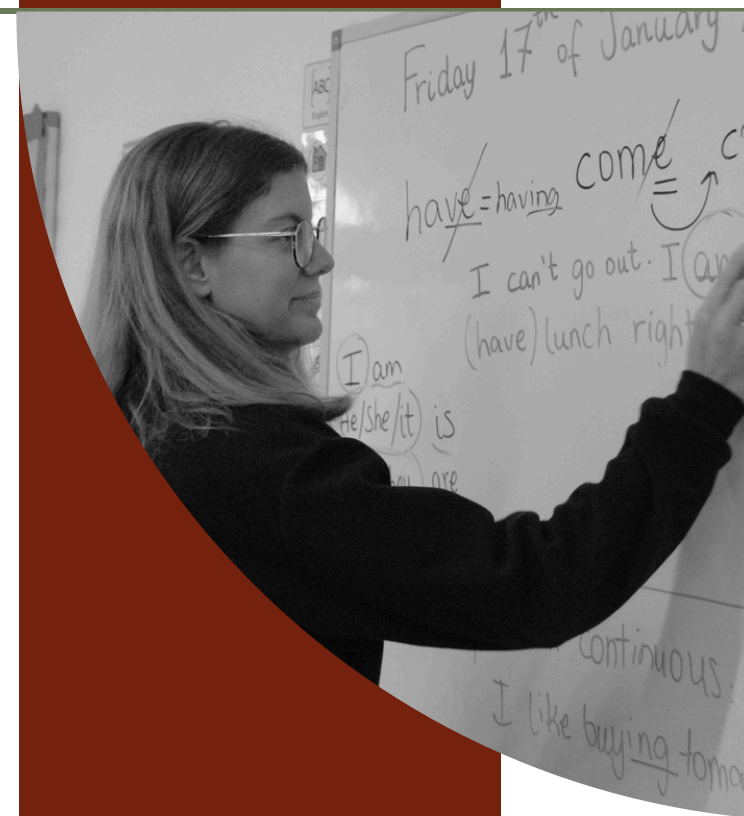 Friday 17th of January
ABC
have = having come
I can't go out. I am
(have) lunch right
I am
He/She/it is
are
continuous:
I like buying